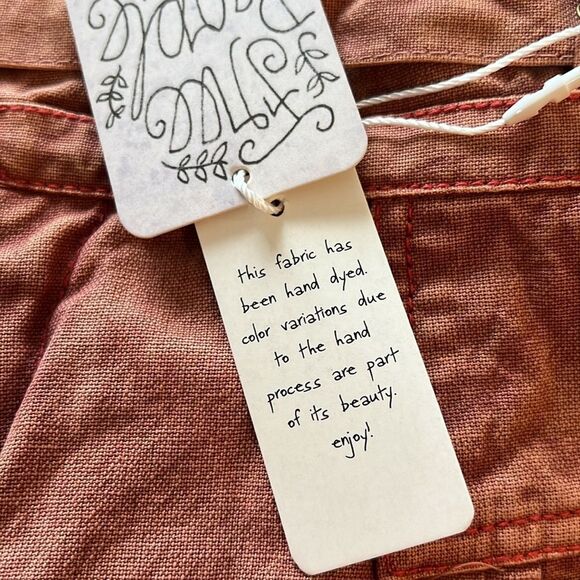 this fabric has
been hand dyed.
color variations due
to the hand
process are part
of its beauty.
enjoy!